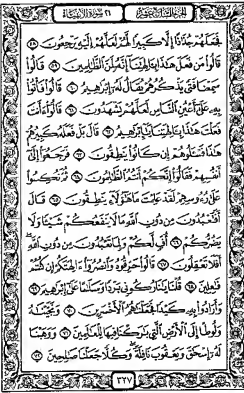 الجزء السابع عشر ٢١ سورة الأنبياء
فَجَعَلَهُمْ جُذَٰذًا إِلَّا كَبِيرًا لَّهُمْ لَعَلَّهُمْ إِلَيْهِ يَرْجِعُونَ ٥٨
قَالُوا۟ مَن فَعَلَ هَٰذَا بِـَٔالِهَتِنَآ إِنَّهُۥ لَمِنَ ٱلظَّٰلِمِينَ ٥٩ قَالُوا۟
سَمِعْنَا فَتًى يَذْكُرُهُمْ يُقَالُ لَهُۥٓ إِبْرَٰهِيمُ ٦٠ قَالُوا۟ فَأْتُوا۟
بِهِۦ عَلَىٰٓ أَعْيُنِ ٱلنَّاسِ لَعَلَّهُمْ يَشْهَدُونَ ٦١ قَالُوٓا۟ ءَأَنتَ
فَعَلْتَ هَٰذَا بِـَٔالِهَتِنَا يَٰٓإِبْرَٰهِيمُ ٦٢ قَالَ بَلْ فَعَلَهُۥ كَبِيرُهُمْ
هَٰذَا فَسْـَٔلُوهُمْ إِن كَانُوا۟ يَنطِقُونَ ٦٣ فَرَجَعُوٓا۟ إِلَىٰٓ
أَنفُسِهِمْ فَقَالُوٓا۟ إِنَّكُمْ أَنتُمُ ٱلظَّٰلِمُونَ ٦٤ ثُمَّ نُكِسُوا۟
عَلَىٰ رُءُوسِهِمْ لَقَدْ عَلِمْتَ مَا هَٰٓؤُلَآءِ يَنطِقُونَ ٦٥ قَالَ
أَفَتَعْبُدُونَ مِن دُونِ ٱللَّهِ مَا لَا يَنفَعُكُمْ شَيْـًٔا وَلَا
يَضُرُّكُمْ ٦٦ أُفٍّ لَّكُمْ وَلِمَا تَعْبُدُونَ مِن دُونِ ٱللَّهِ
أَفَلَا تَعْقِلُونَ ٦٧ قَالُوا۟ حَرِّقُوهُ وَٱنصُرُوٓا۟ ءَالِهَتَكُمْ إِن كُنتُمْ
فَٰعِلِينَ ٦٨ قُلْنَا يَٰنَارُ كُونِى بَرْدًا وَسَلَٰمًا عَلَىٰٓ إِبْرَٰهِيمَ ٦٩
وَأَرَادُوا۟ بِهِۦ كَيْدًا فَجَعَلْنَٰهُمُ ٱلْأَخْسَرِينَ ٧٠ وَنَجَّيْنَٰهُ
وَلُوطًا إِلَى ٱلْأَرْضِ ٱلَّتِى بَٰرَكْنَا فِيهَا لِلْعَٰلَمِينَ ٧١ وَوَهَبْنَا
لَهُۥٓ إِسْحَٰقَ وَيَعْقُوبَ نَافِلَةً وَكُلًّا جَعَلْنَا صَٰلِحِينَ ٧٢
٣٢٧